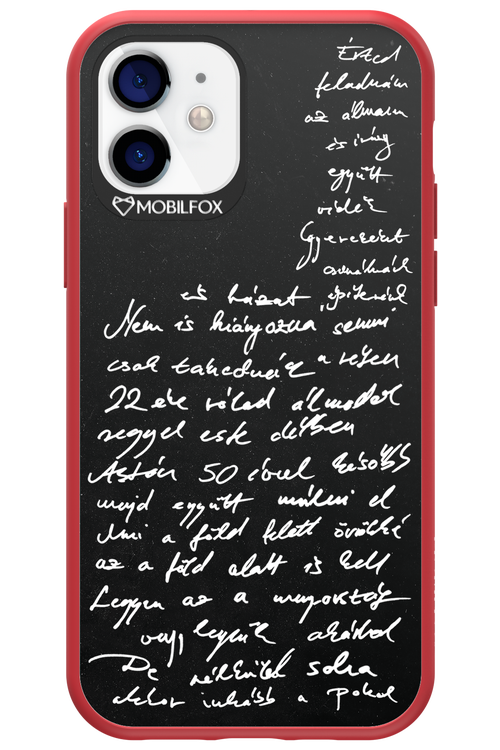 MOBILFOX
Érted
feladnám
az álmaim
és így
együtt
Gyerekeket
csinálnánk
és házat építenénk
Nem is hiányozna semmi
csak takednánk a réten
22 éve rólad álmodok
reggel este délben
Aztán 50 évvel később
majd együtt múlni el
Ami a föld felett örökké
az a föld alatt is kell
Legyen az a mennyország
vagy legyünk akárhol
De nélküled soha
akkor inkább a pokol